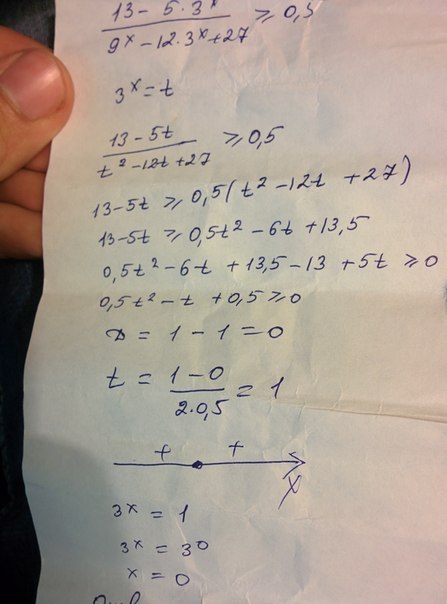 13 - 5·3ˣ / 9ˣ - 12·3ˣ + 27 ≥ 0,5
3ˣ = t
13 - 5t / t² - 12t + 27 ≥ 0,5
13 - 5t ≥ 0,5(t² - 12t + 27)
13 - 5t ≥ 0,5t² - 6t + 13,5
0,5t² - 6t + 13,5 - 13 + 5t ≥ 0
0,5t² - t + 0,5 ≥ 0
D = 1 - 1 = 0
t = 1 - 0 / 2·0,5 = 1
+ +
X
3ˣ = 1
3ˣ = 3⁰
x = 0